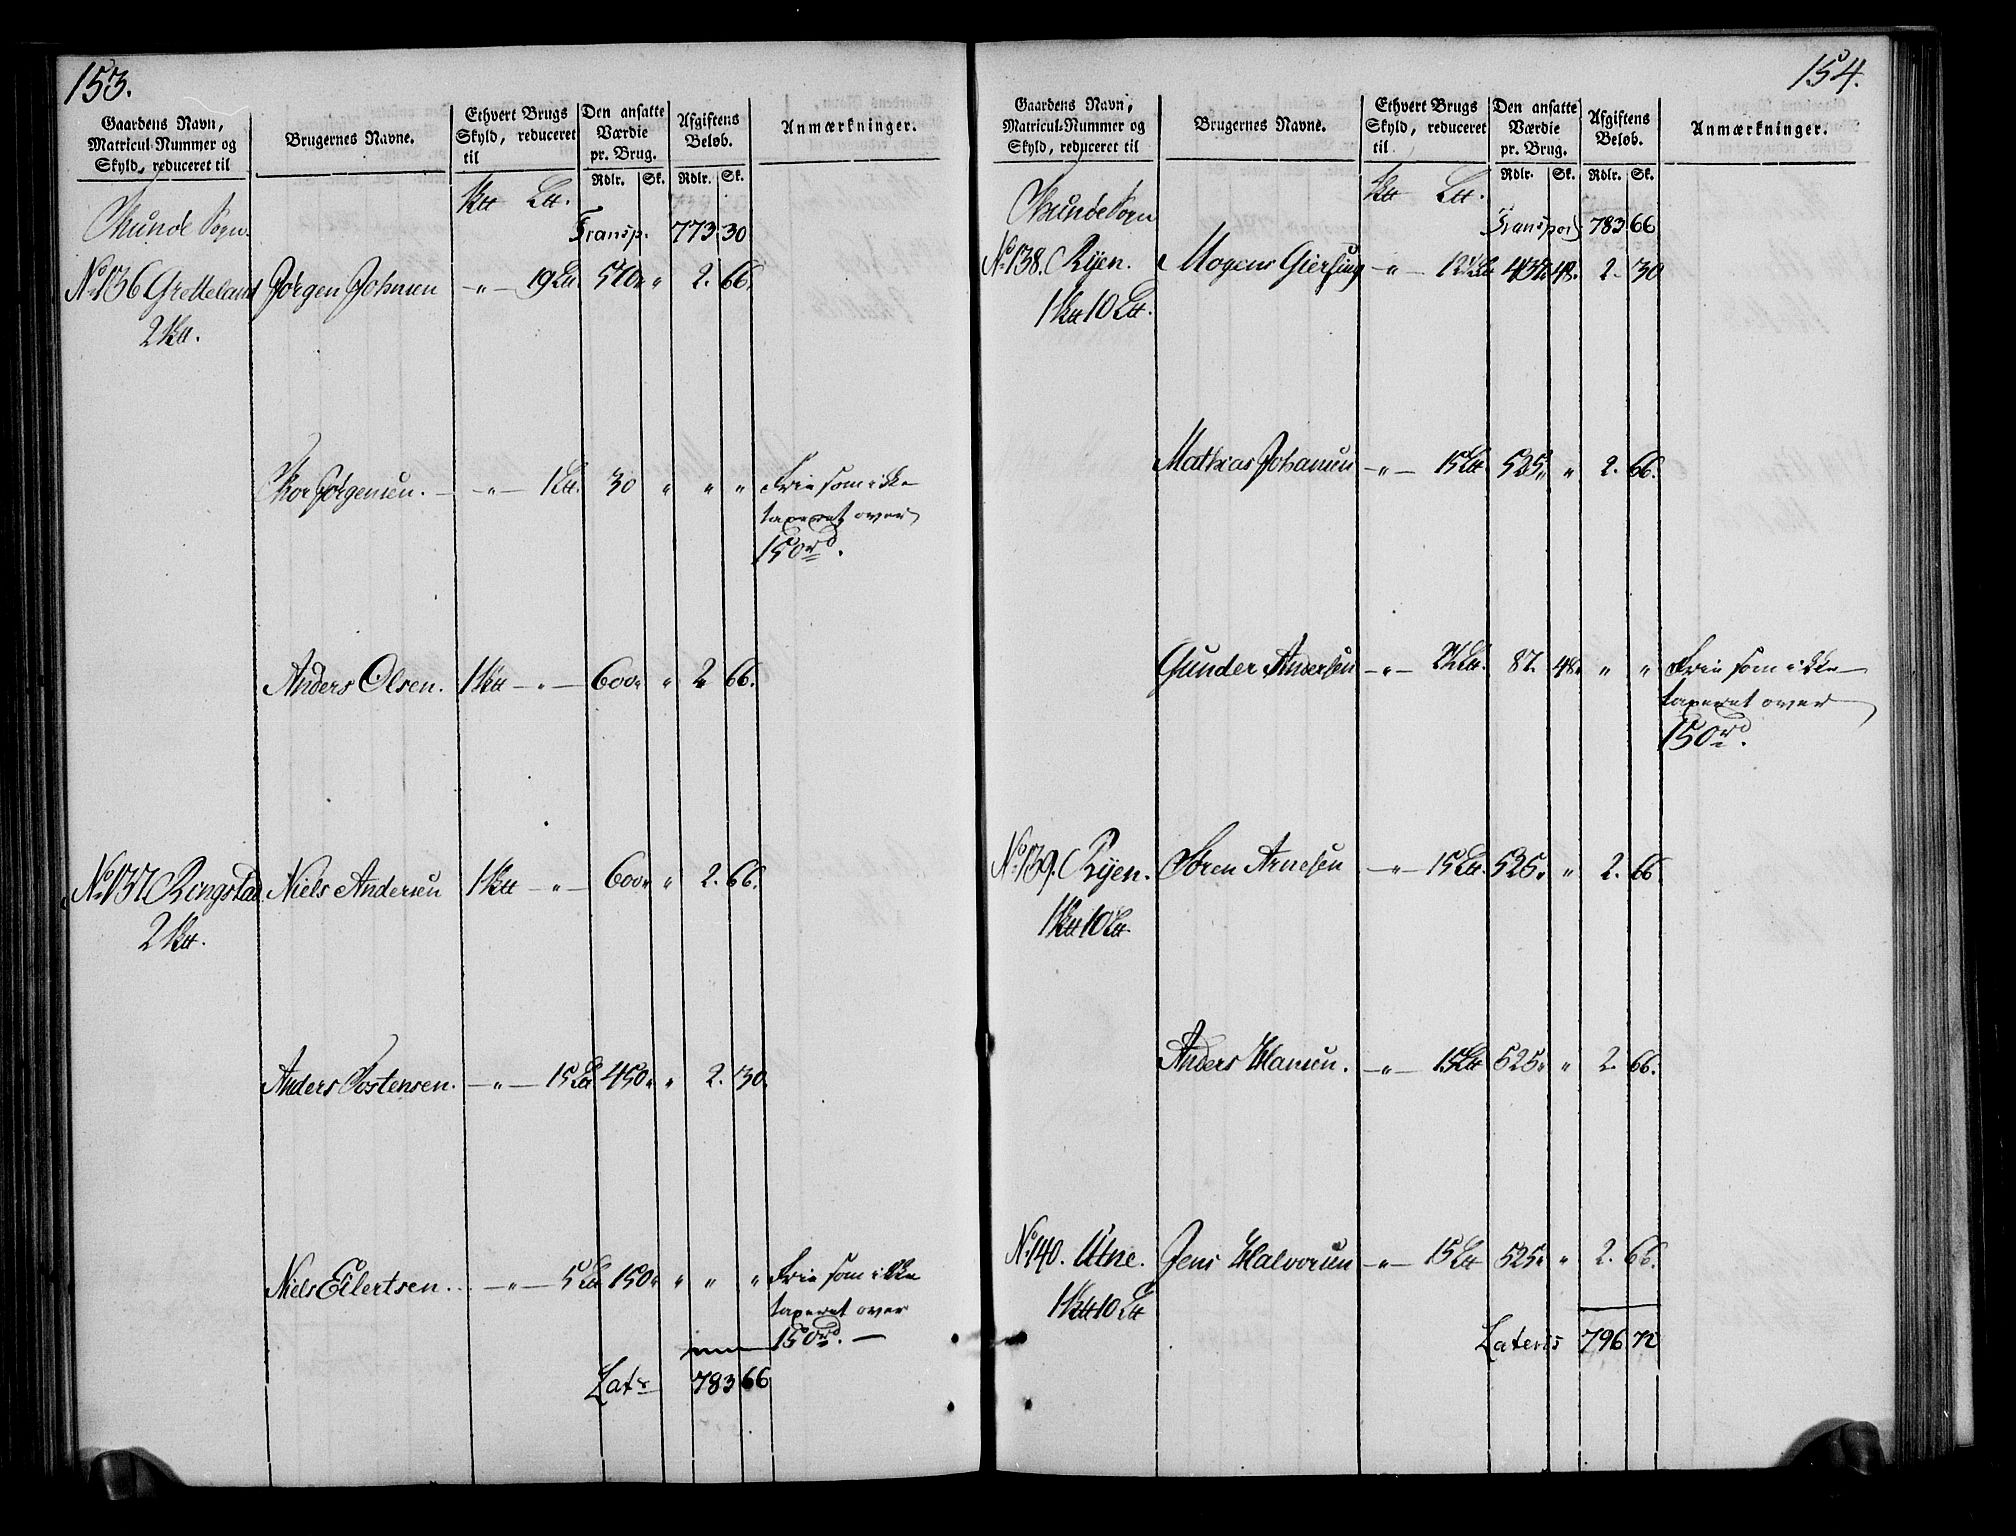 153.
Gaardens Navn, Matricul-Nummer og Skyld, reduceret til
Brugernes Navne.
Ethvert Brugs Skyld, reduceret til
Den ansatte Værdie pr. Brug.
Afgiftens Beløb.
Anmærkninger.
Rdlr. Sk. Rdlr. Sk.
Skunde Sogn. Transp. 773. 30
No 136 Gretteland Jørgen Johnsen — " — 19 Ltt. 570 " " 2. 66.
2 Htt.
Thor Jørgensen. — " — 1 Ltt. 30 " " " Frie som ikke
taxeret over
150 rd.
Anders Olsen. 1 Htt — " — 600 " " 2 66.
No 137. Ringstad Niels Andersen 1 Htt — " — 600 " " 2. 66.
2 Htt.
Anders Tostensen. — " — 15 Ltt 450 " " 2. 30.
Niels Eilertsen. — " — 5 Ltt 150 " " " " Frie som ikke
taxeret over
150 rd. —
Lats 783 66
154.
Gaardens Navn, Matricul-Nummer og Skyld, reduceret til
Brugernes Navne.
Ethvert Brugs Skyld, reduceret til
Den ansatte Værdie pr. Brug.
Afgiftens Beløb.
Anmærkninger.
Rdlr. Sk. Rdlr. Sk.
Skunde Sogn Transport 783. 66
No 138. Rÿen. Mogens Giersing — " — 12½ Ltt 437. 48. 2. 30
1 Htt 10 Ltt.
Mathias Johansen — " — 15 Ltt. 525 " " 2. 66.
Gunder Andersen — " — 2½ Ltt. 87. 48. " " Frie som ikke
taxeret over
150 rd.
No 139. Rÿen. Søren Arnesen — " — 15 Ltt. 525 " " 2. 66.
1 Htt 10 Ltt.
Anders Hansen. — " — 15 Ltt 525 " " 2. 66.
No 140. Utne. Jens Halvorsen — " — 15 Ltt 525 " " 2. 66.
1 Htt 10 Ltt
Lateris 796 72